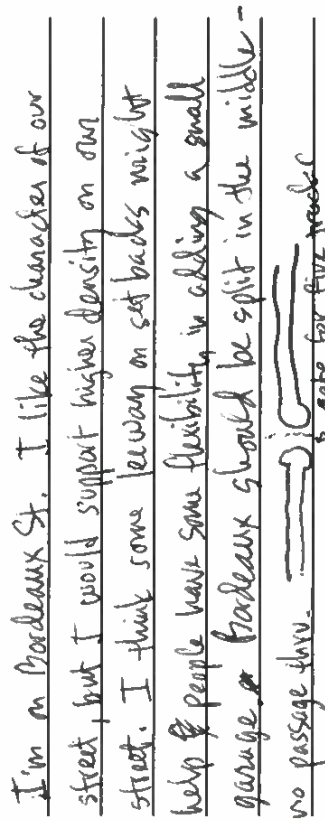 I'm on Bordeaux St. I like the character of our
street, but I would support higher density on our
street. I think some leeway on set backs might
help people have some flexibility in adding a small
garage. Bordeaux should be split in the middle -
no passage thru.
gate for fire